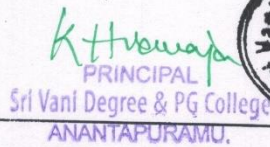 PRINCIPAL
Sri Vani Degree & PG College
ANANTAPURAMU.